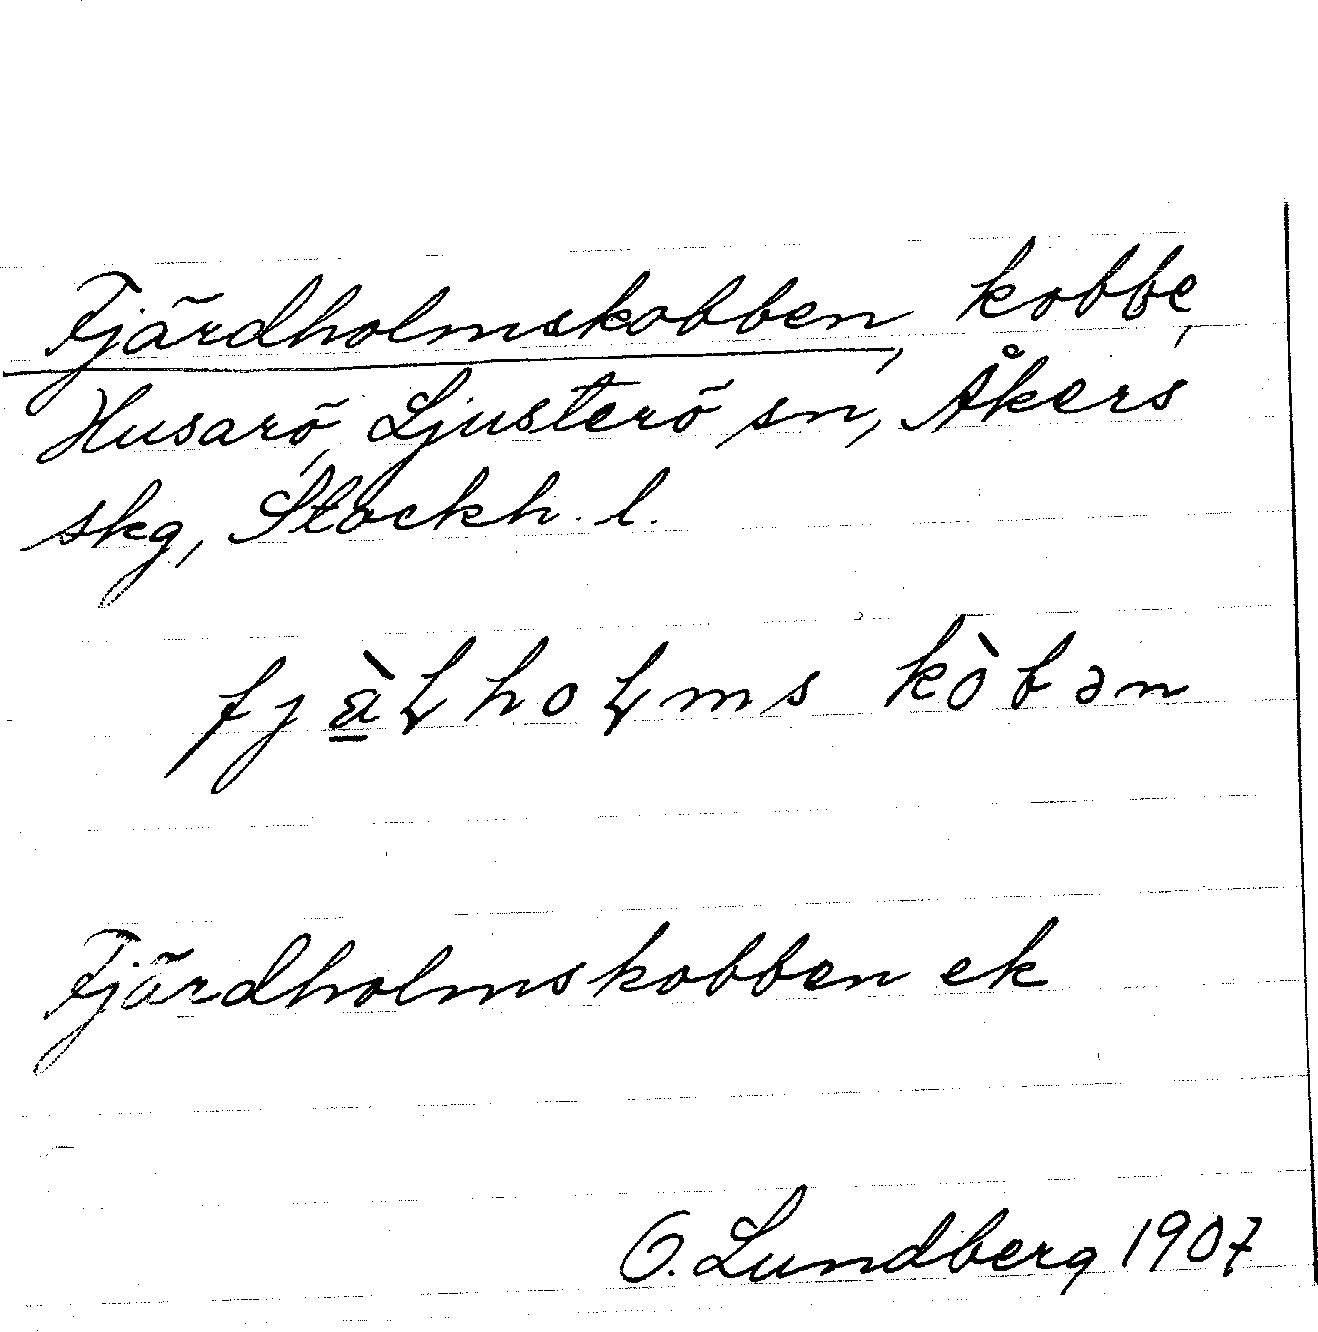 Fjärdholmskobben, kobbe,
Husarö, Ljusterö sn, Åkers
skg, Stockh. l.
fjä̀ɽhoɽms kòbən
Fjärdholmskobben ek
O. Lundberg 1907